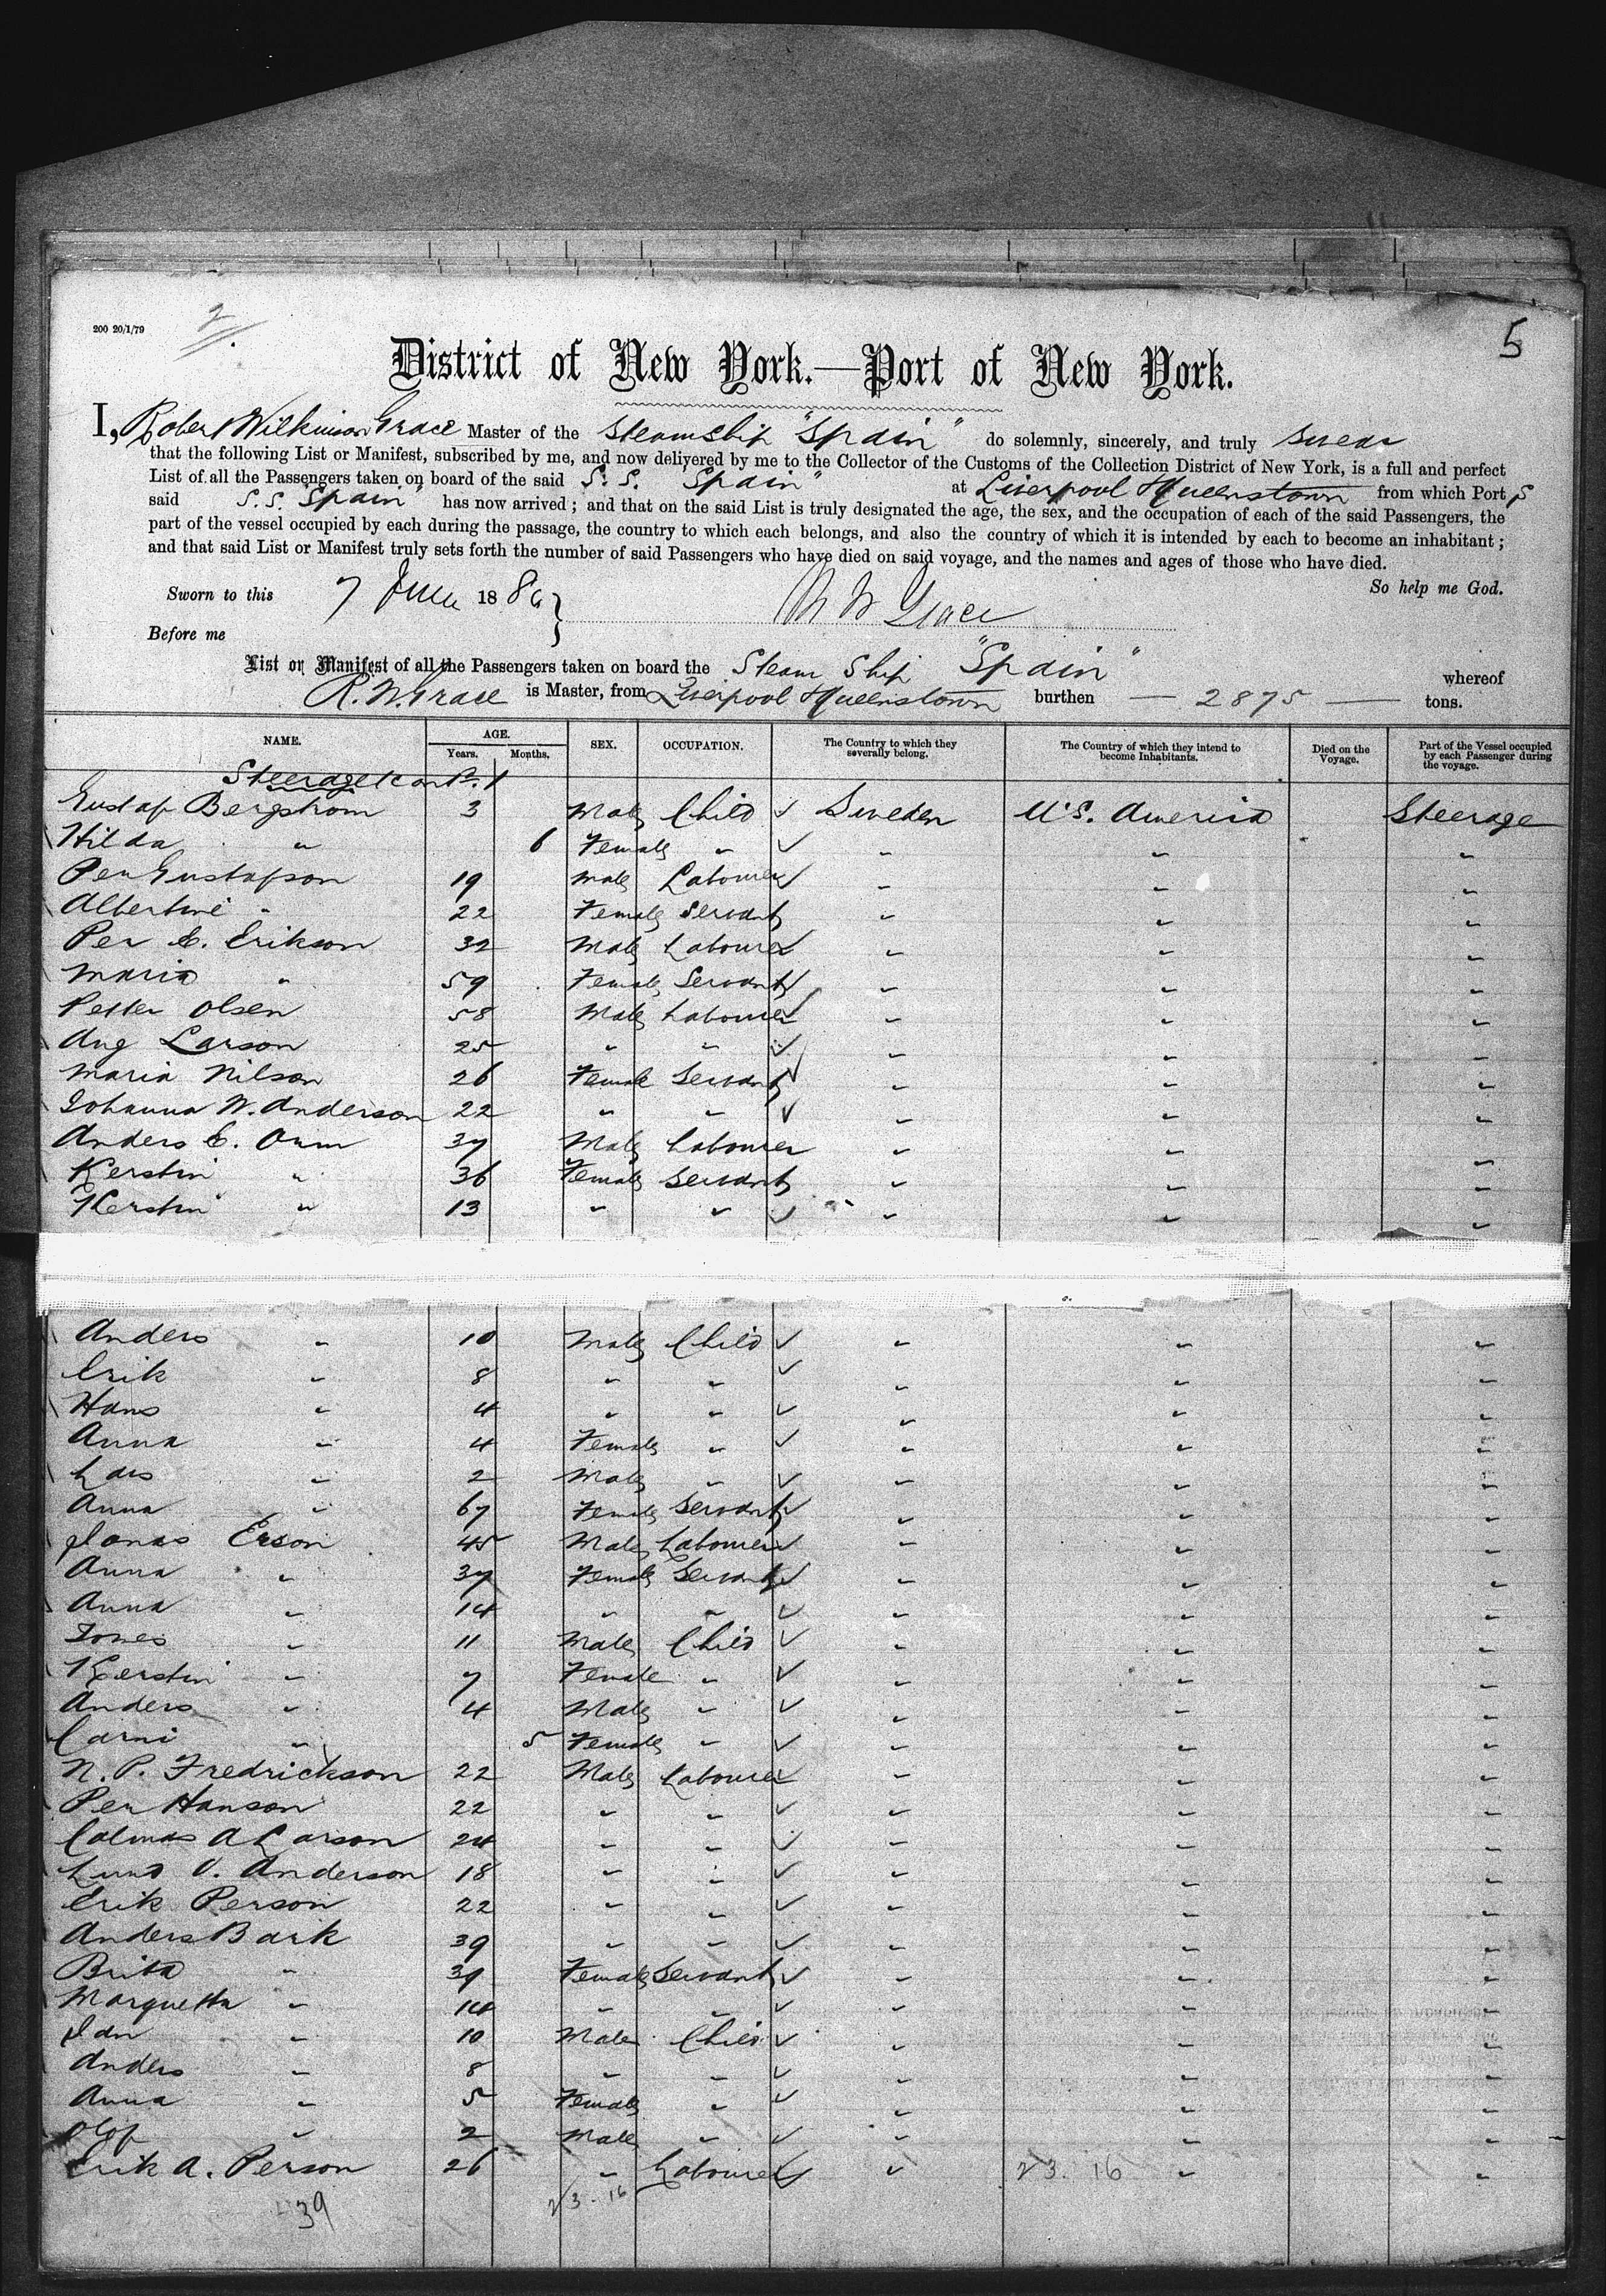 200 20/1/79
2
5
District of New York.—Port of New York.
I, Robert Wilkinson Grace Master of the Steamship "Spain" do solemnly, sincerely, and truly swear
that the following List or Manifest, subscribed by me, and now delivered by me to the Collector of the Customs of the Collection District of New York, is a full and perfect
List of all the Passengers taken on board of the said S. S. Spain" at Liverpool & Queenstown from which Port s
said S. S. "Spain" has now arrived; and that on the said List is truly designated the age, the sex, and the occupation of each of the said Passengers, the
part of the vessel occupied by each during the passage, the country to which each belongs, and also the country of which it is intended by each to become an inhabitant;
and that said List or Manifest truly sets forth the number of said Passengers who have died on said voyage, and the names and ages of those who have died.
So help me God.
Sworn to this 7 June 1880
R W Grace
Before me
List or Manifest of all the Passengers taken on board the Steam Ship "Spain" whereof
R. W. Grace is Master, from Liverpool & Queenstown burthen — 2875 — tons.
NAME. AGE. Years. Months. SEX. OCCUPATION. The Country to which they severally belong. The Country of which they intend to become Inhabitants. Died on the Voyage. Part of the Vessel occupied by each Passenger during the voyage.
Steerage
Gustaf Bergstrom 3 Male Child ✓ Sweden U.S. America Steerage
Hilda " 6 Female " ✓ " " "
Per Gustafson 19 Male Labourer ✓ " " "
Albertine " 22 Female Servant " " "
Per E. Erikson 32 Male Labourer ✓ " " "
Maria " 59 Female Servant ✓ " " "
Petter Olsen 58 Male Labourer ✓ " " "
Aug Larson 25 " " ✓ " " "
Maria Nilson 26 Female Servant ✓ " " "
Johanna W. Anderson 22 " " ✓ " " "
Anders E. 37 Male Labourer " " "
Kerstin " 36 Female Servant " " "
Kerstin " 13 " " ✓ " " "
Anders " 10 Male Child ✓ " " "
Erik " 8 " " ✓ " " "
Hans " 4 " " ✓ " " "
Anna " 4 Female " ✓ " " "
Lars " 2 Male " ✓ " " "
Anna " 67 Female Servant ✓ " " "
Jonas Erson 45 Male Labourer ✓ " " "
Anna " 37 Female Servant ✓ " " "
Anna " 14 " " ✓ " " "
Jones " 11 Male Child ✓ " " "
Kerstin " 7 Female " ✓ " " "
Anders " 4 Male " ✓ " " "
Carni " 5 Female " ✓ " " "
N. P. Fredrickson 22 Male Labourer ✓ " " "
Per Hanson 22 " " ✓ " " "
A Larson 24 " " ✓ " " "
Anderson 18 " " ✓ " " "
Erik Person 22 " " ✓ " " "
Anders Bark 39 " " ✓ " " "
Brita " 39 Female Servant ✓ " " "
Marguetta " 14 " " ✓ " " "
" 10 Male Child ✓ " " "
Anders " 8 " " ✓ " " "
Anna " 5 Female " ✓ " " "
Olof " 2 Male " ✓ " " "
Erik A. Person 26 " Labourer ✓ " 23. 16 " "
39 23. 16